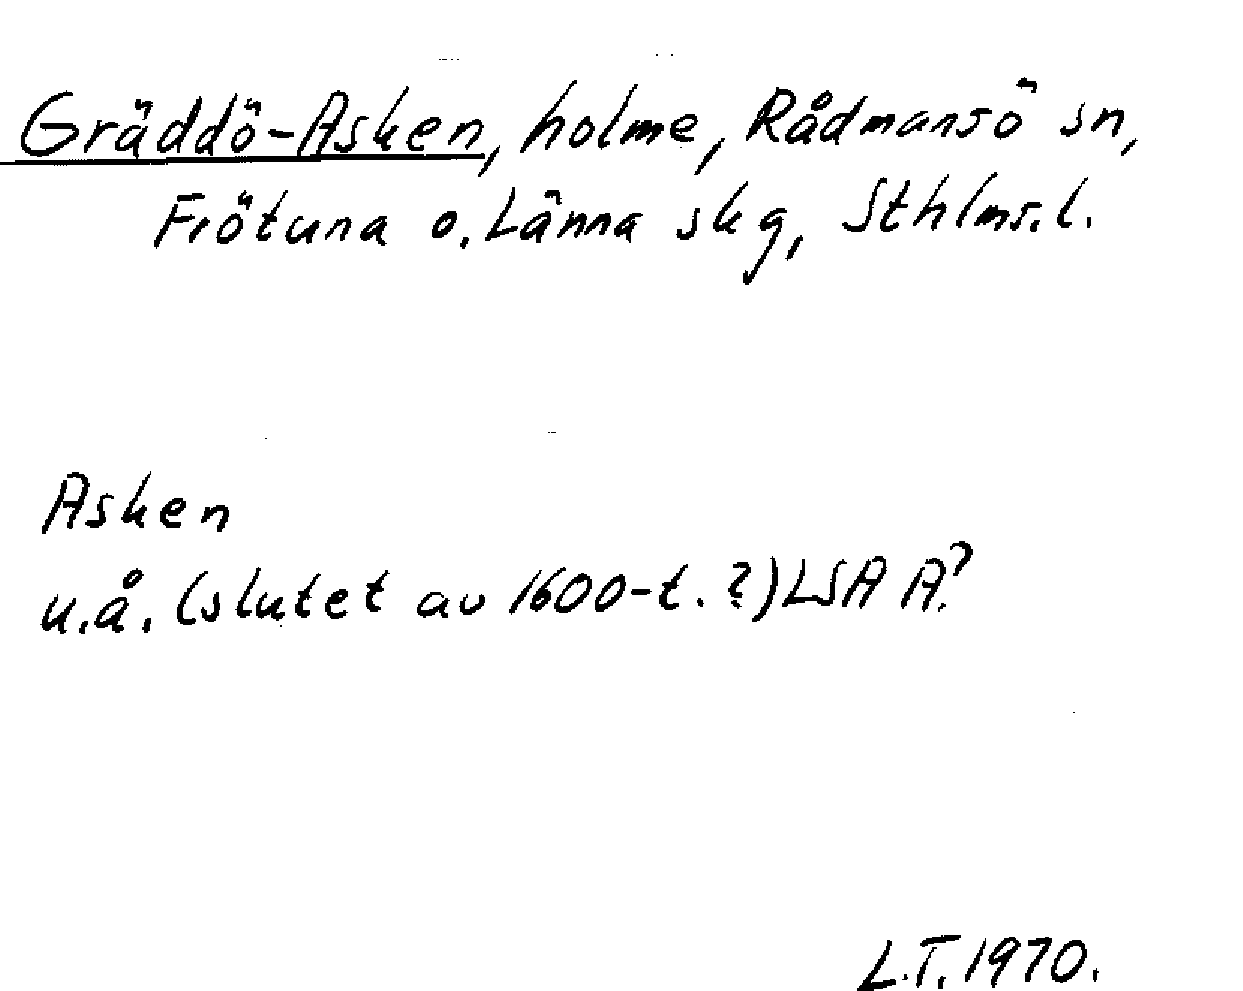 Gräddö-Asken, holme, Rådmansö sn,
Frötuna o. Länna skg, Sthlms.l.
Asken
u.å. (slutet av 1600-t. ?) LSA A?
L.T. 1970.